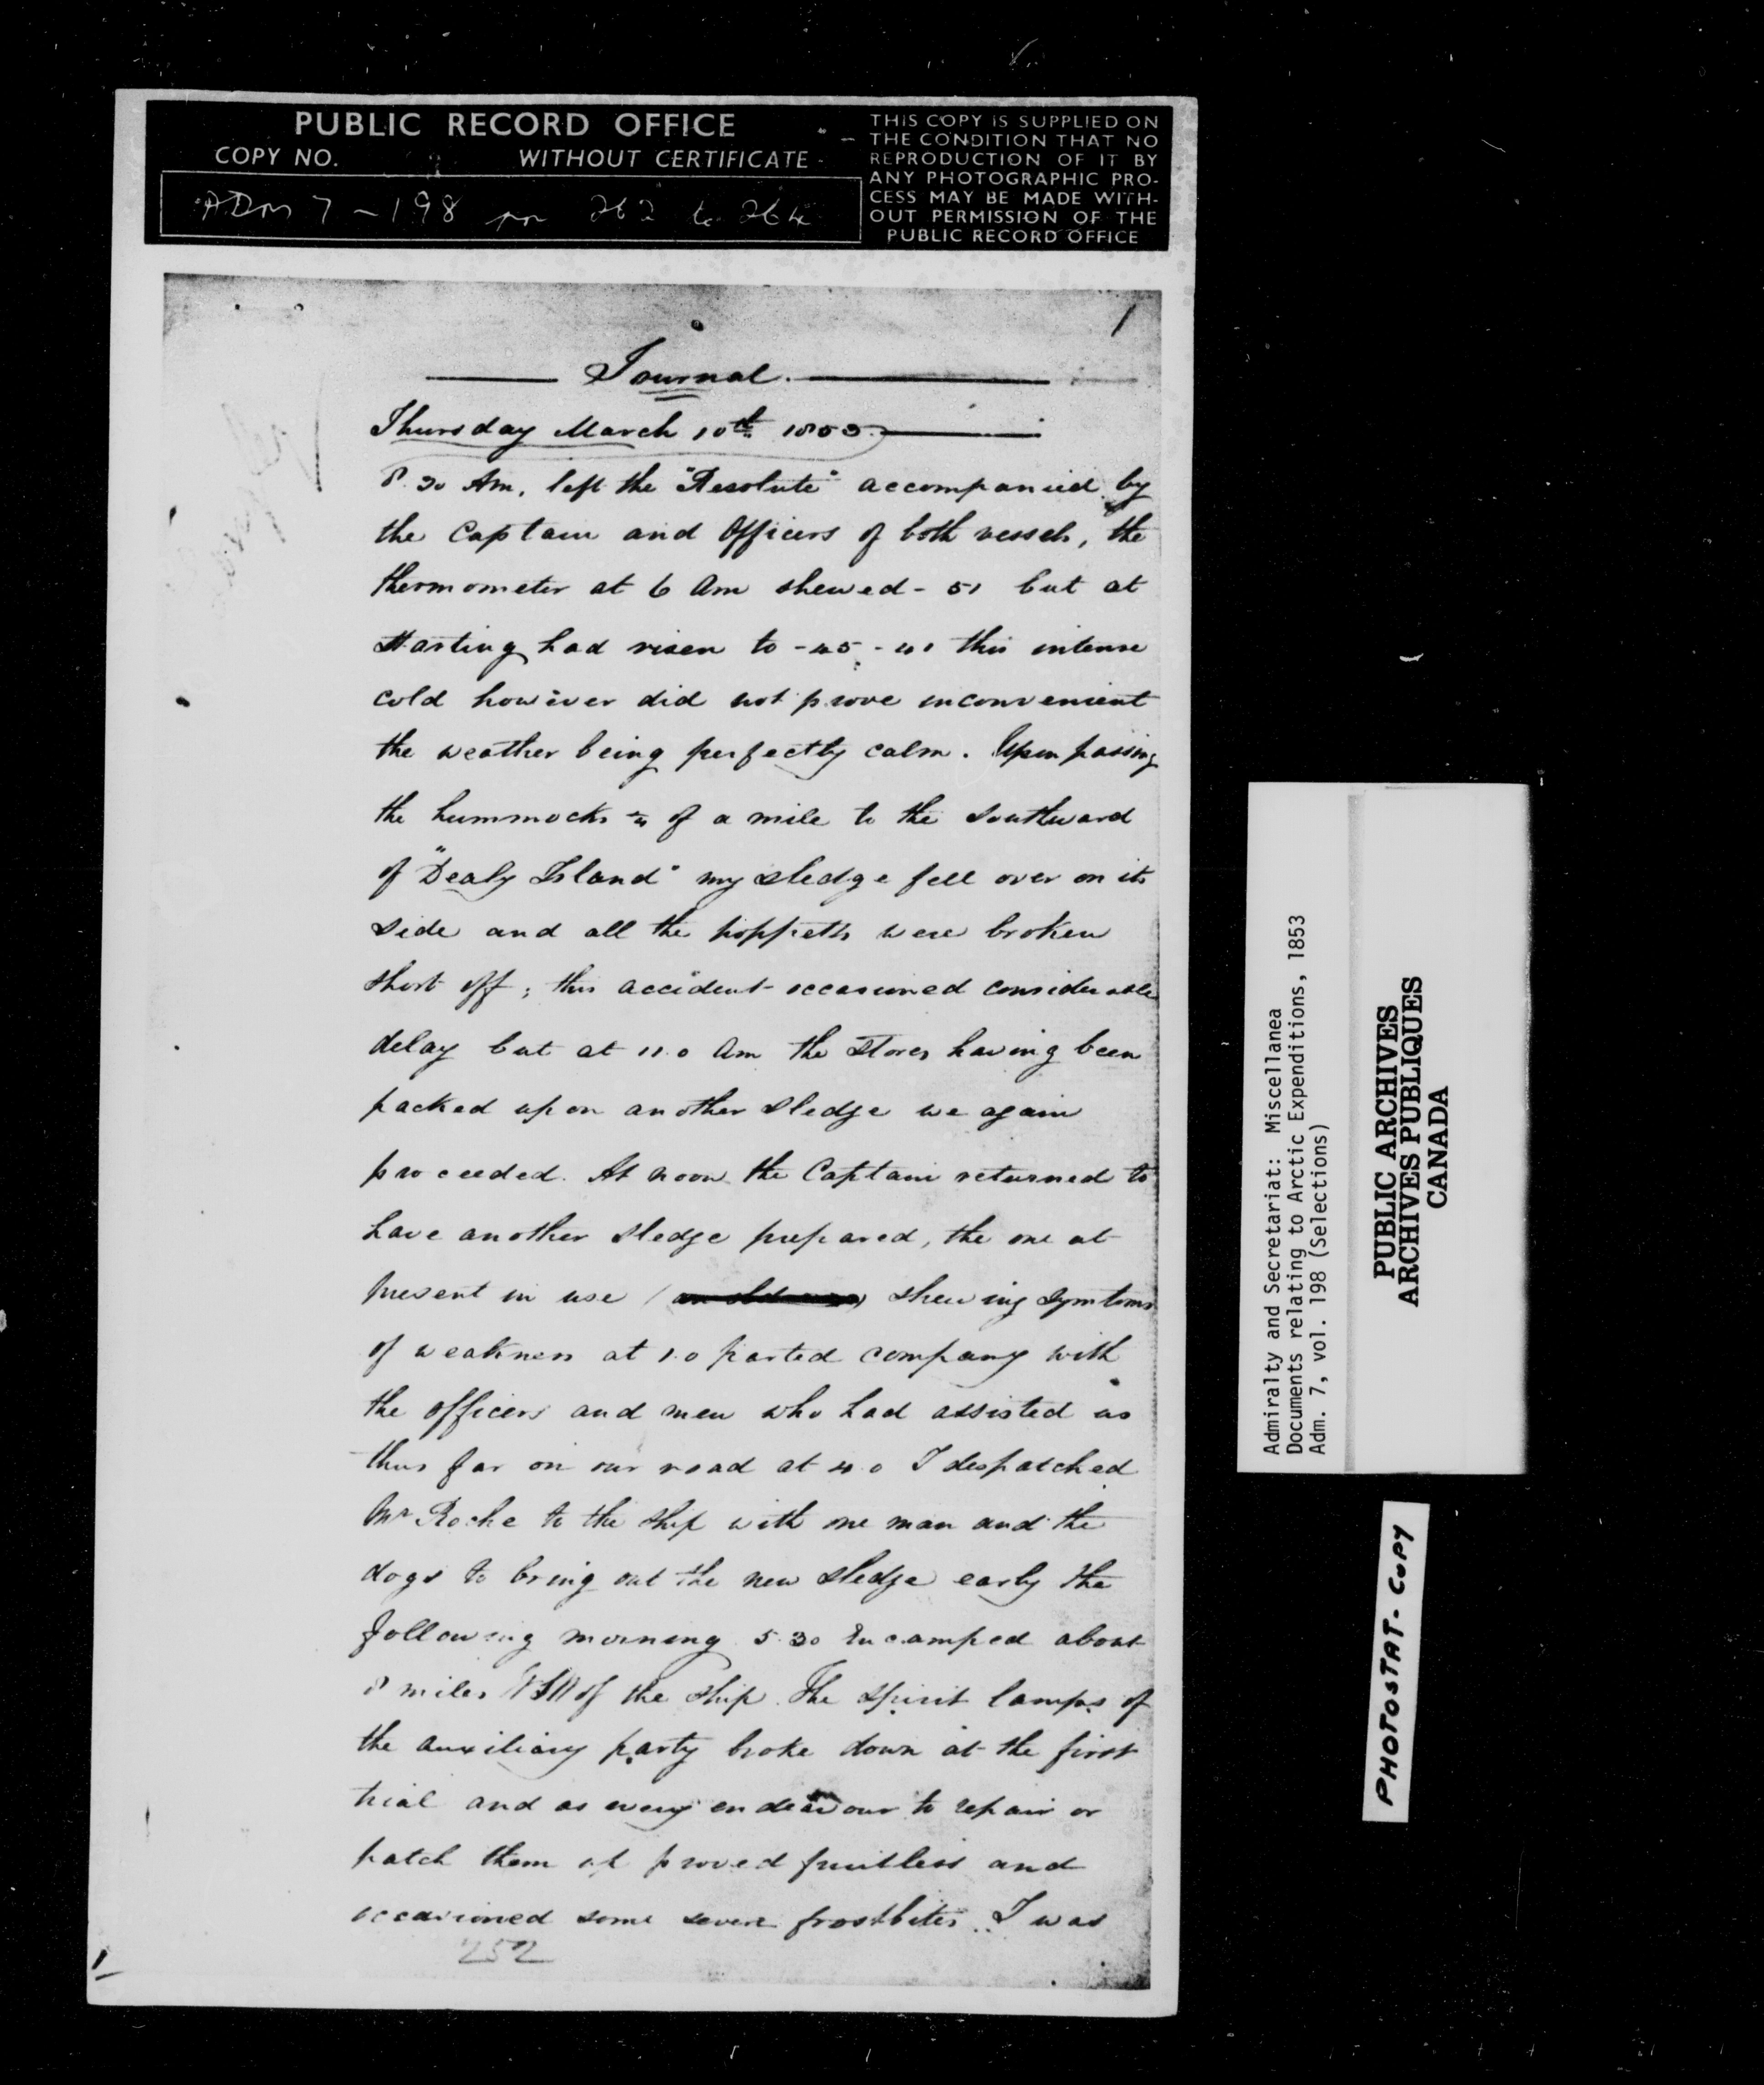 PUBLIC RECORD OFFICE
COPY NO. WITHOUT CERTIFICATE
ADM 7 - 198 262 to 264
THIS COPY IS SUPPLIED ON
THE CONDITION THAT NO
REPRODUCTION OF IT BY
ANY PHOTOGRAPHIC PRO-
CESS MAY BE MADE WITH-
OUT PERMISSION OF THE
PUBLIC RECORD OFFICE
1
Journal.
Thursday March 10th 1853
8.30 Am, left the "Resolute" accompanied by
the Captain and Officers of both vessels, the
thermometer at 6 Am shewed - 51 but at
starting had risen to -45 this intense
cold however did not prove inconvenient
the weather being perfectly calm. Upon passing
the hummocks of a mile to the Southward
of "Dealy Island" my sledge fell over on its
side and all the poppetts were broken
short off; this accident occasioned considerable
delay but at 11.0 Am the stores having been
packed upon another sledge we again
proceeded. At noon the Captain returned to
have another sledge prepared, the one at
present in use shewing symtoms
of weakness at 1.0 parted company with
the officers and men who had assisted us
thus far on our road at 4.0 I despatched
Mr Roche to the ship with one man and the
dogs to bring out the new sledge early the
following morning 5.30 Encamped about
8 miles of the ship. The spirit lamps of
the auxiliary party broke down at the first
trial and as every endeavour to repair or
patch them up proved fruitless and
occasioned some severe frostbites. I was
252
1
Admiralty and Secretariat: Miscellanea
Documents relating to Arctic Expenditions, 1853
Adm. 7, vol. 198 (Selections)
PUBLIC ARCHIVES
ARCHIVES PUBLIQUES
CANADA
PHOTOSTAT-COPY